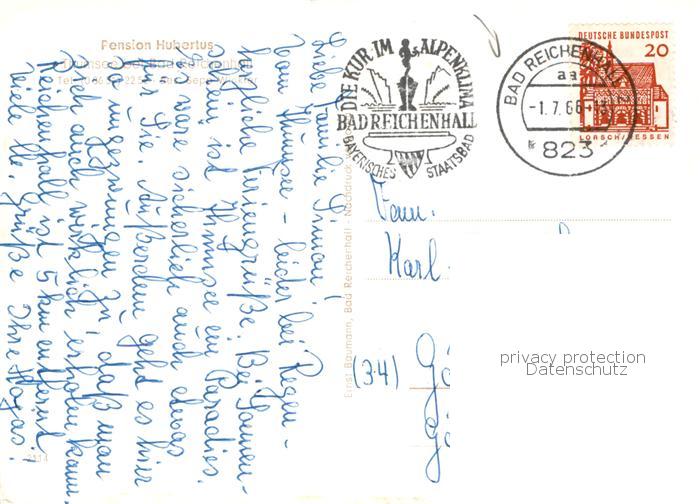 Pension Hubertus
Thumsee bei Bad Reichenhall
Liebe Familie Simon!
Vom Thumsee – leider bei Regen –
herzliche Feriengrüße. Bei Sonnen-
schein ist Thumsee ein Paradies.
Es wäre sicherlich auch etwas
für Sie. Außerdem geht es hier
so ungezwungen zu, daß man
sich auch wirklich erholen kann.
Reichenhall ist 5 km entfernt.
Viele lb. Grüße Ihre
2114
Ernst Baumann, Bad Reichenhall - Nachdruck
DIE KUR IM ALPENKLIMA
BAD REICHENHALL
BAYERISCHES STAATSBAD
BAD REICHENHALL
aa
-1.7.66-
823
DEUTSCHE BUNDESPOST
20
LORSCH/HESSEN
Fam.
Karl
(34) Gö
Gö
privacy protection
Datenschutz